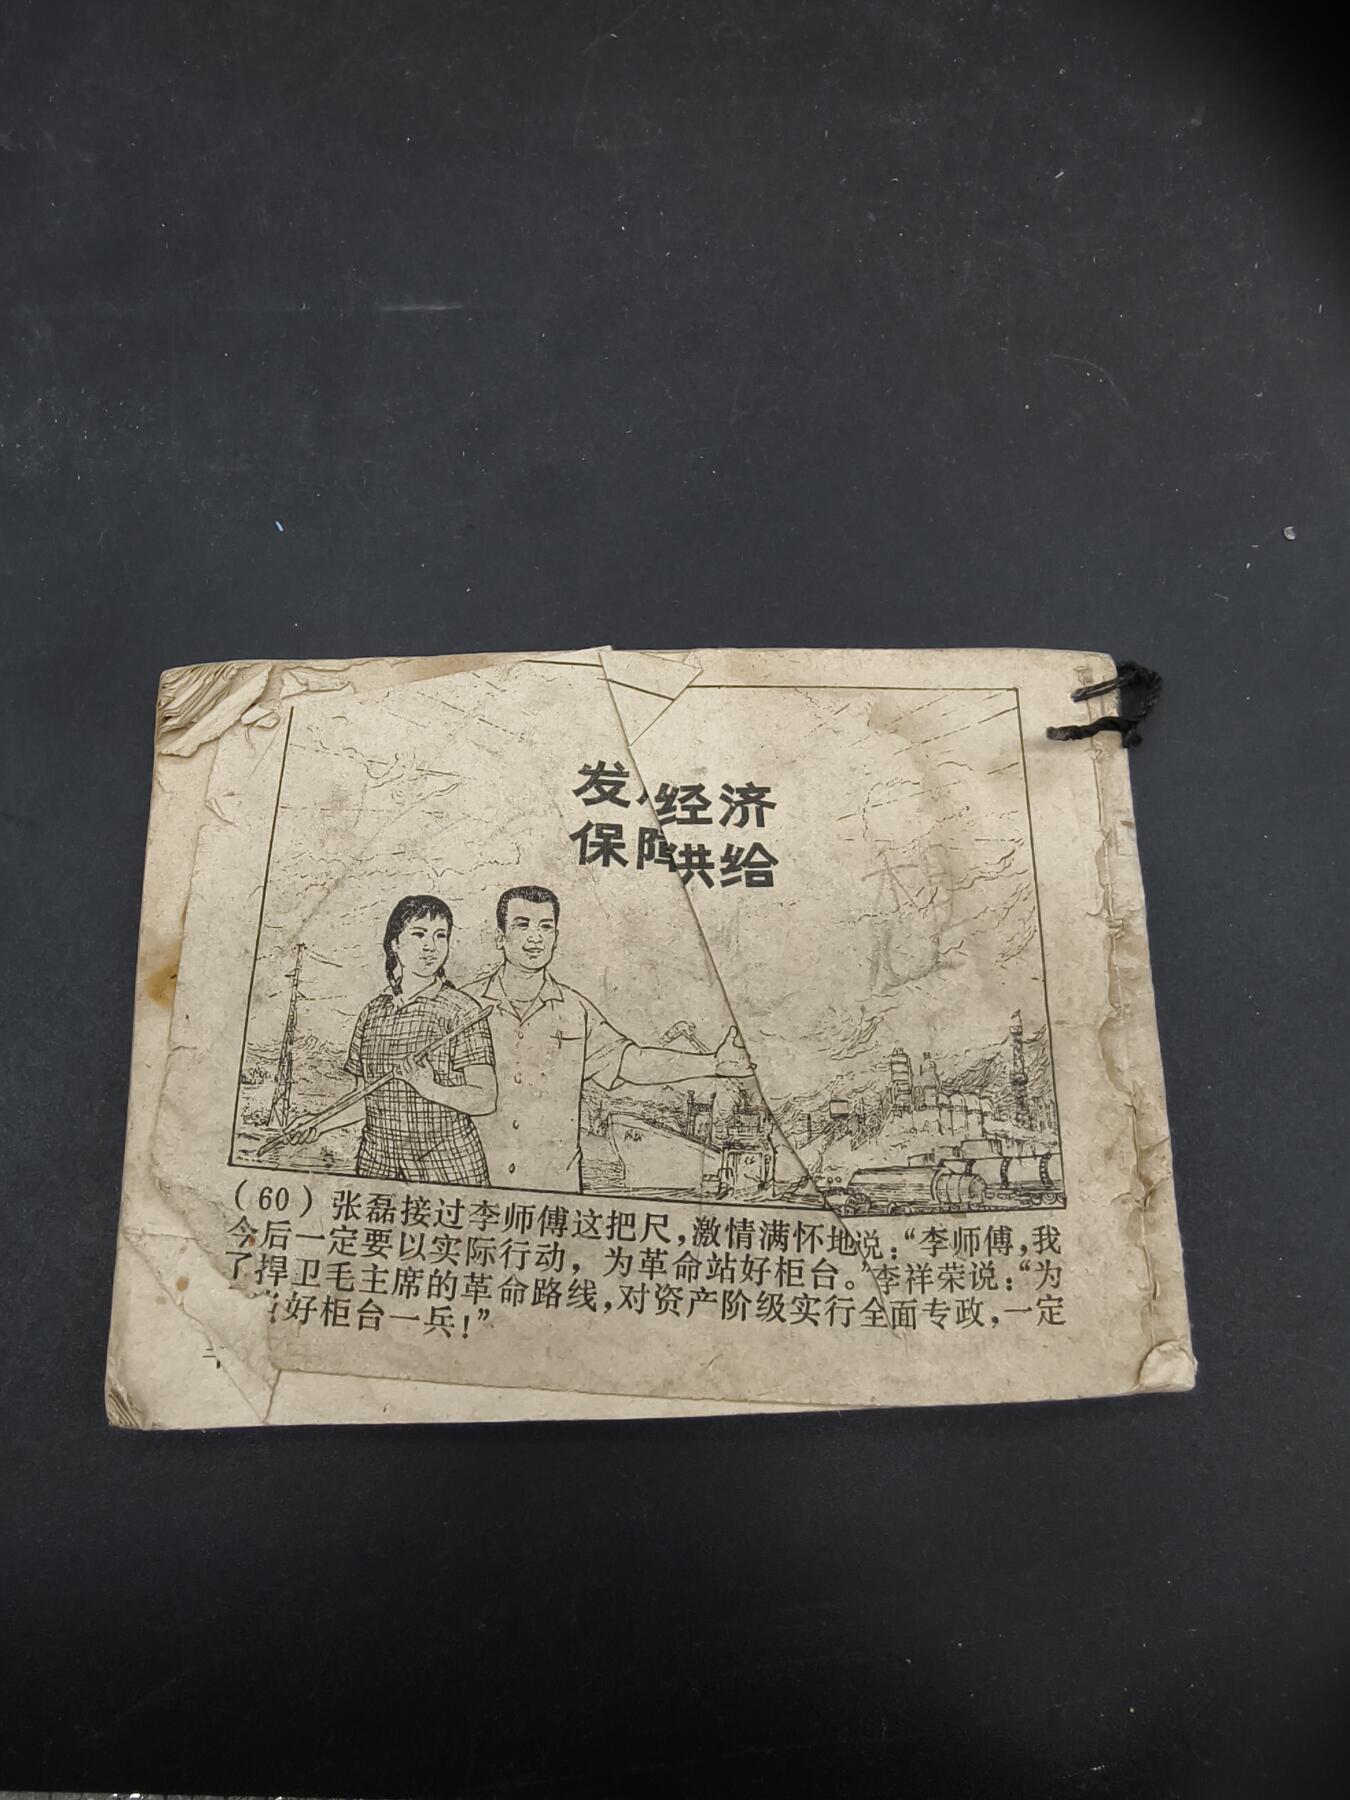 发 经济
保障供给
(60) 张磊接过李师傅这把尺,激情满怀地说:“李师傅,我
今后一定要以实际行动,为革命站好柜台。”李祥荣说:“为
了捍卫毛主席的革命路线,对资产阶级实行全面专政,一定
好柜台一兵!”